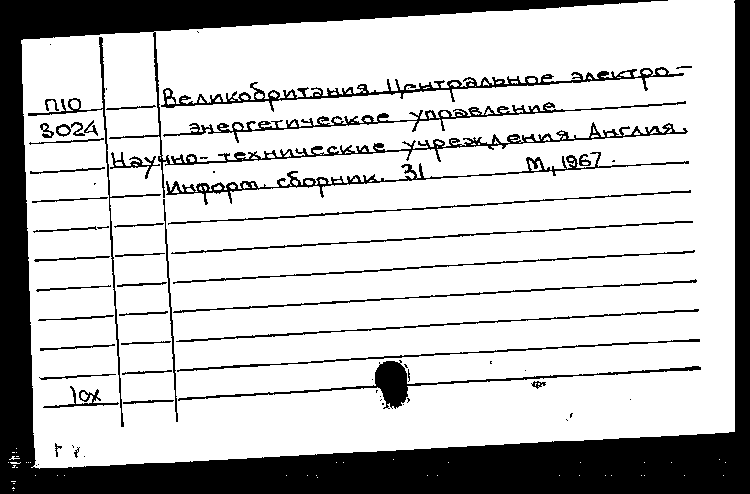 П10 Великобритания. Центральное электро-
3024 энергетическое управление.
Научно-технические учреждения. Англия.
Информ. сборник. 31 М., 1967.
10х